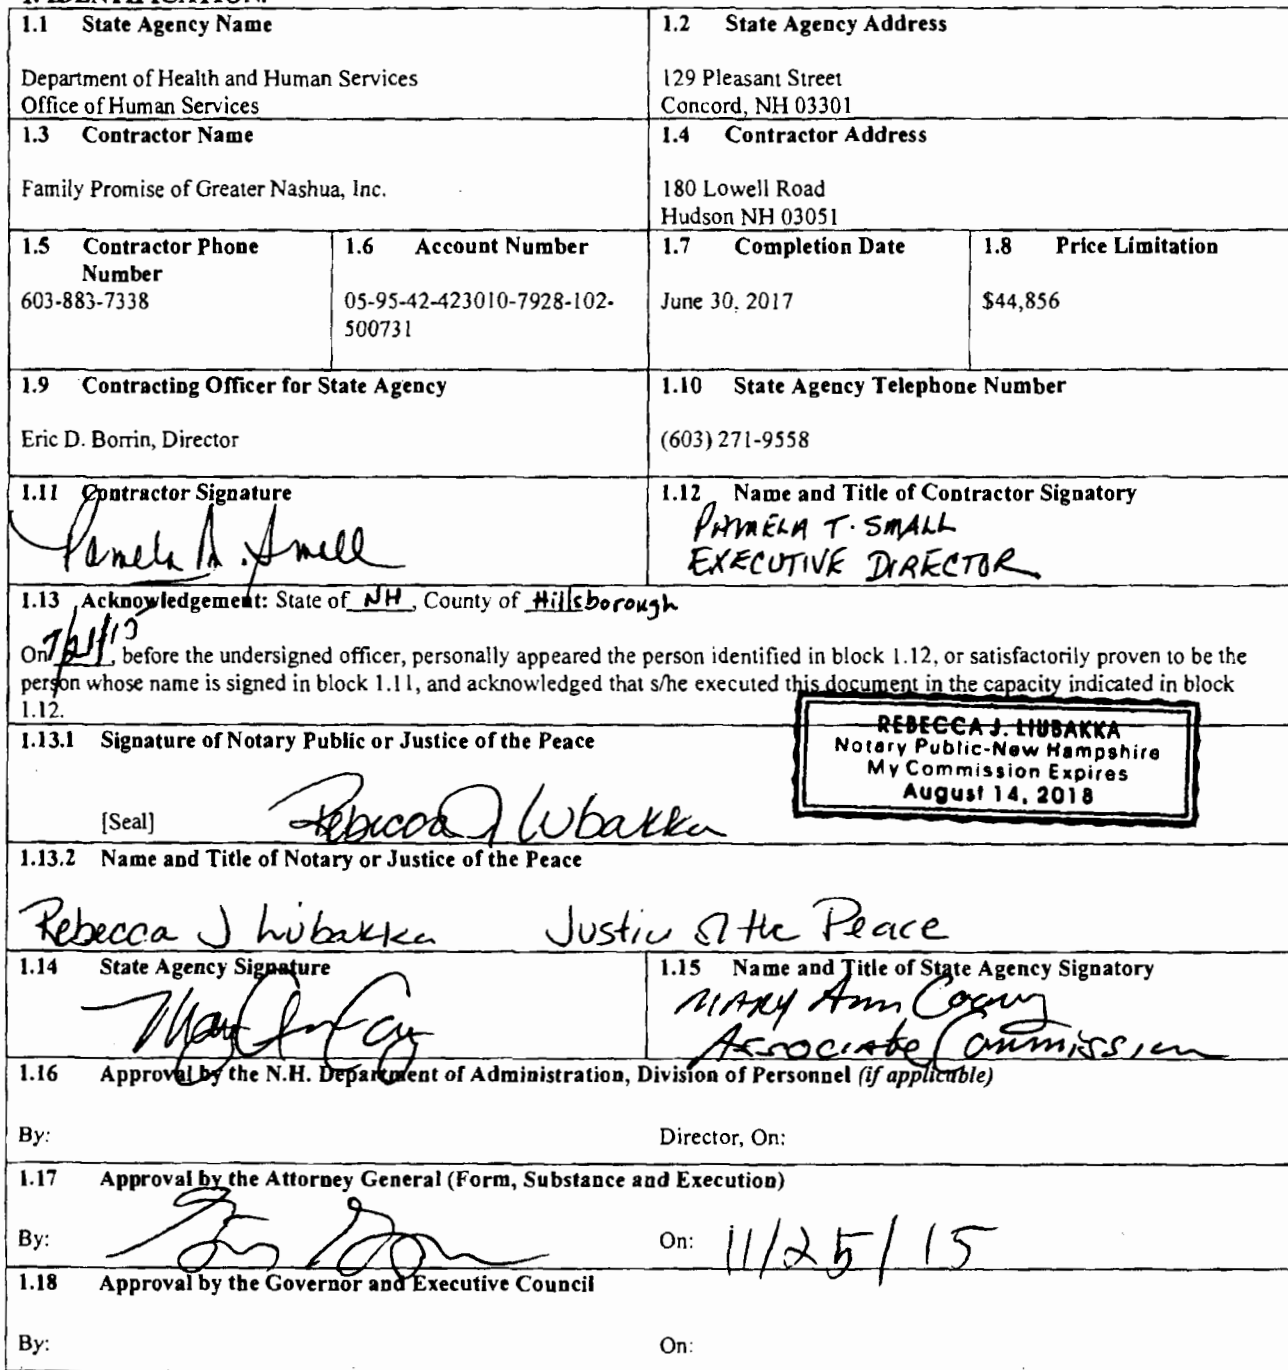 1.1 State Agency Name
Department of Health and Human Services
Office of Human Services
1.2 State Agency Address
129 Pleasant Street
Concord, NH 03301
1.3 Contractor Name
Family Promise of Greater Nashua, Inc.
1.4 Contractor Address
180 Lowell Road
Hudson NH 03051
1.5 Contractor Phone
Number
603-883-7338
1.6 Account Number
05-95-42-423010-7928-102-
500731
1.7 Completion Date
June 30, 2017
1.8 Price Limitation
$44,856
1.9 Contracting Officer for State Agency
Eric D. Borrin, Director
1.10 State Agency Telephone Number
(603) 271-9558
1.11 Contractor Signature
1.12 Name and Title of Contractor Signatory
PAMELA T. SMALL
EXECUTIVE DIRECTOR
1.13 Acknowledgement: State of NH, County of Hillsborough
On , before the undersigned officer, personally appeared the person identified in block 1.12, or satisfactorily proven to be the
person whose name is signed in block 1.11, and acknowledged that s/he executed this document in the capacity indicated in block
1.12.
1.13.1 Signature of Notary Public or Justice of the Peace
[Seal]
REBECCA J. LIUBAKKA
Notary Public-New Hampshire
My Commission Expires
August 14, 2018
1.13.2 Name and Title of Notary or Justice of the Peace
Rebecca J Liubakka Justice of the Peace
1.14 State Agency Signature
1.15 Name and Title of State Agency Signatory
MARY Ann Cooney
Associate Commission
1.16 Approval by the N.H. Department of Administration, Division of Personnel (if applicable)
By:
Director, On:
1.17 Approval by the Attorney General (Form, Substance and Execution)
By:
On: 11/25/15
1.18 Approval by the Governor and Executive Council
By:
On: